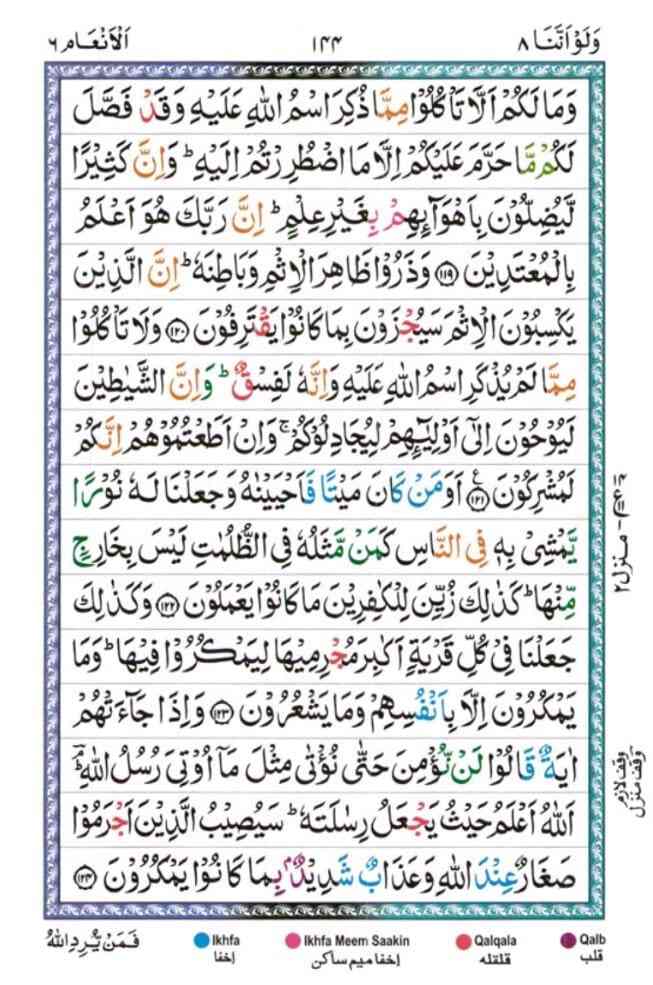 وَلَوْ اَنَّنَا ٨ ١٤٤ اَلْاَنْعَام ٦
وَمَا لَكُمْ اَلَّا تَاْكُلُوْا مِمَّا ذُكِرَ اسْمُ اللّٰهِ عَلَيْهِ وَقَدْ فَصَّلَ
لَكُمْ مَّا حَرَّمَ عَلَيْكُمْ اِلَّا مَا اضْطُرِرْتُمْ اِلَيْهِ ؕ وَاِنَّ كَثِيْرًا
لَّيُضِلُّوْنَ بِاَهْوَآئِهِمْ بِغَيْرِ عِلْمٍ ؕ اِنَّ رَبَّكَ هُوَ اَعْلَمُ
بِالْمُعْتَدِيْنَ ﴿۱۱۹﴾ وَذَرُوْا ظَاهِرَ الْاِثْمِ وَبَاطِنَهٗ ؕ اِنَّ الَّذِيْنَ
يَكْسِبُوْنَ الْاِثْمَ سَيُجْزَوْنَ بِمَا كَانُوْا يَقْتَرِفُوْنَ ﴿۱۲۰﴾ وَلَا تَاْكُلُوْا
مِمَّا لَمْ يُذْكَرِ اسْمُ اللّٰهِ عَلَيْهِ وَاِنَّهٗ لَفِسْقٌ ؕ وَاِنَّ الشَّيٰطِيْنَ
لَيُوْحُوْنَ اِلٰٓى اَوْلِيٰٓئِهِمْ لِيُجَادِلُوْكُمْ ۚ وَاِنْ اَطَعْتُمُوْهُمْ اِنَّكُمْ
لَمُشْرِكُوْنَ ﴿۱۲۱﴾ اَوَمَنْ كَانَ مَيْتًا فَاَحْيَيْنٰهُ وَجَعَلْنَا لَهٗ نُوْرًا
يَّمْشِيْ بِهٖ فِى النَّاسِ كَمَنْ مَّثَلُهٗ فِى الظُّلُمٰتِ لَيْسَ بِخَارِجٍ
مِّنْهَا ؕ كَذٰلِكَ زُيِّنَ لِلْكٰفِرِيْنَ مَا كَانُوْا يَعْمَلُوْنَ ﴿۱۲۲﴾ وَكَذٰلِكَ
جَعَلْنَا فِيْ كُلِّ قَرْيَةٍ اَكٰبِرَ مُجْرِمِيْهَا لِيَمْكُرُوْا فِيْهَا ؕ وَمَا
يَمْكُرُوْنَ اِلَّا بِاَنْفُسِهِمْ وَمَا يَشْعُرُوْنَ ﴿۱۲۳﴾ وَاِذَا جَآءَتْهُمْ
اٰيَةٌ قَالُوْا لَنْ نُّؤْمِنَ حَتّٰى نُؤْتٰى مِثْلَ مَآ اُوْتِيَ رُسُلُ اللّٰهِ ؔۘ
اَللّٰهُ اَعْلَمُ حَيْثُ يَجْعَلُ رِسٰلَتَهٗ ؕ سَيُصِيْبُ الَّذِيْنَ اَجْرَمُوْا
صَغَارٌ عِنْدَ اللّٰهِ وَعَذَابٌ شَدِيْدٌۢ بِمَا كَانُوْا يَمْكُرُوْنَ ﴿۱۲۴﴾
منزل ٢
وقف لازم
وقف منزل
فَمَنْ يُّرِدِ اللّٰهُ
Ikhfa
اِخفا
Ikhfa Meem Saakin
اِخفا میم ساکن
Qalqala
قلقله
Qalb
قلب